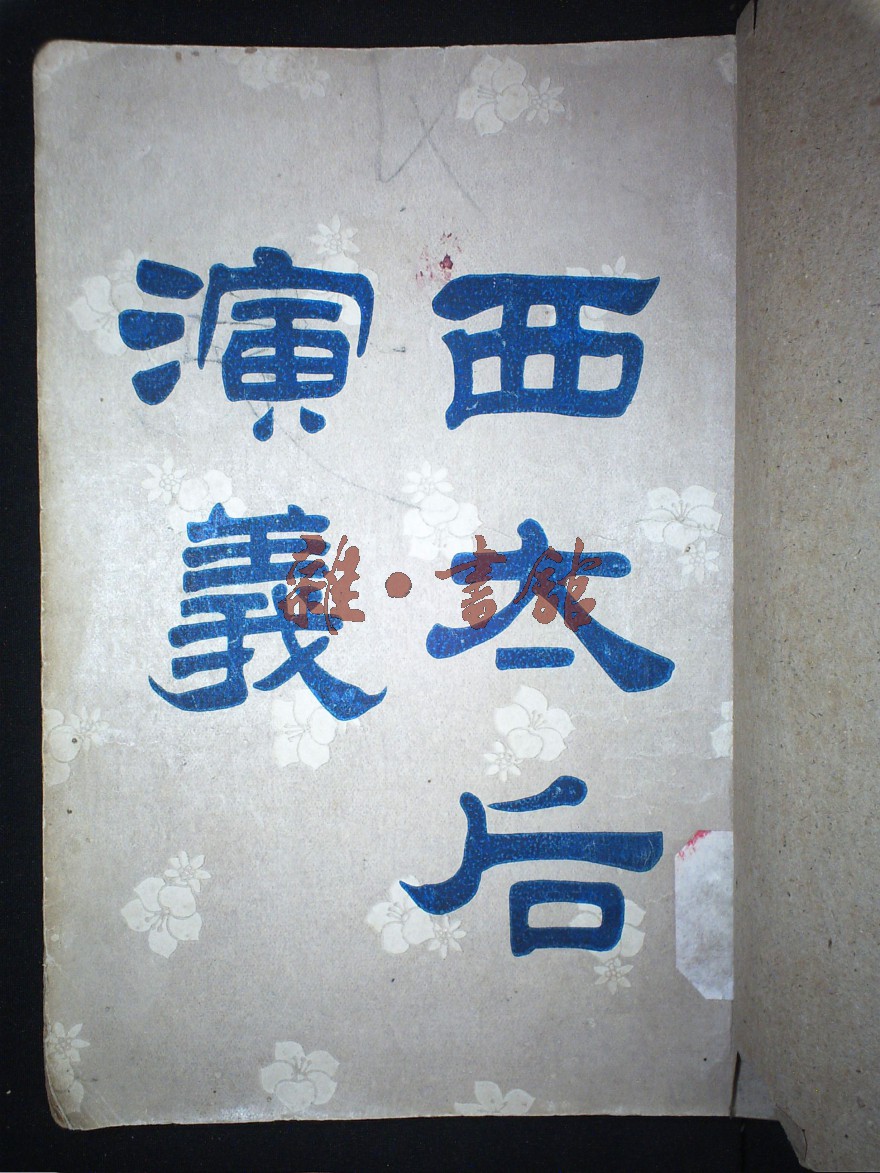 西太后
演義
雒·書館